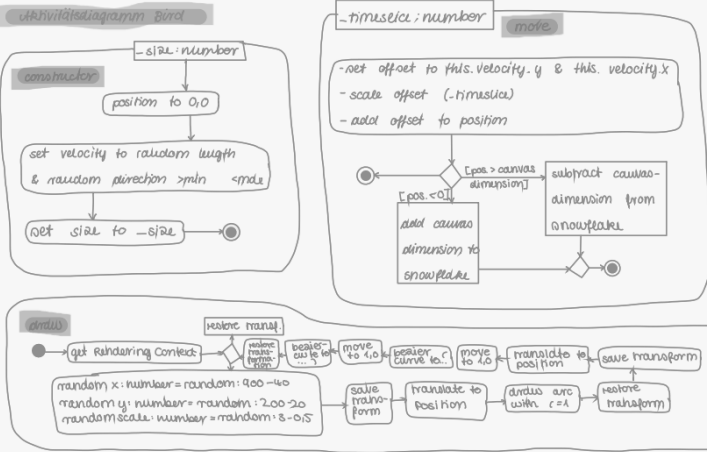 Aktivitätsdiagramm Bird
constructor
_size: number
position to 0,0
set velocity to random length
& random direction >min <max
set size to _size
_timeslice: number
move
-set offset to this.velocity.y & this.velocity.x
-scale offset (_timeslice)
-add offset to position
[pos.>canvas
dimension]
[pos.<0]
subtract canvas-
dimension from
snowflake
add canvas
dimension to
snowflake
draw
restore transf.
get Rendering Context
restore
trans-
forma-
tion
bezier-
curve to
...)
move
to 1,0
bezier
curve to (
move
to 1,0
translate to
position
save transform
random x: number = random: 900-40
random y: number = random: 200-20
random scale: number = random: 3-0,5
save
trans-
form
translate to
position
draw arc
with r=1
restore
transform